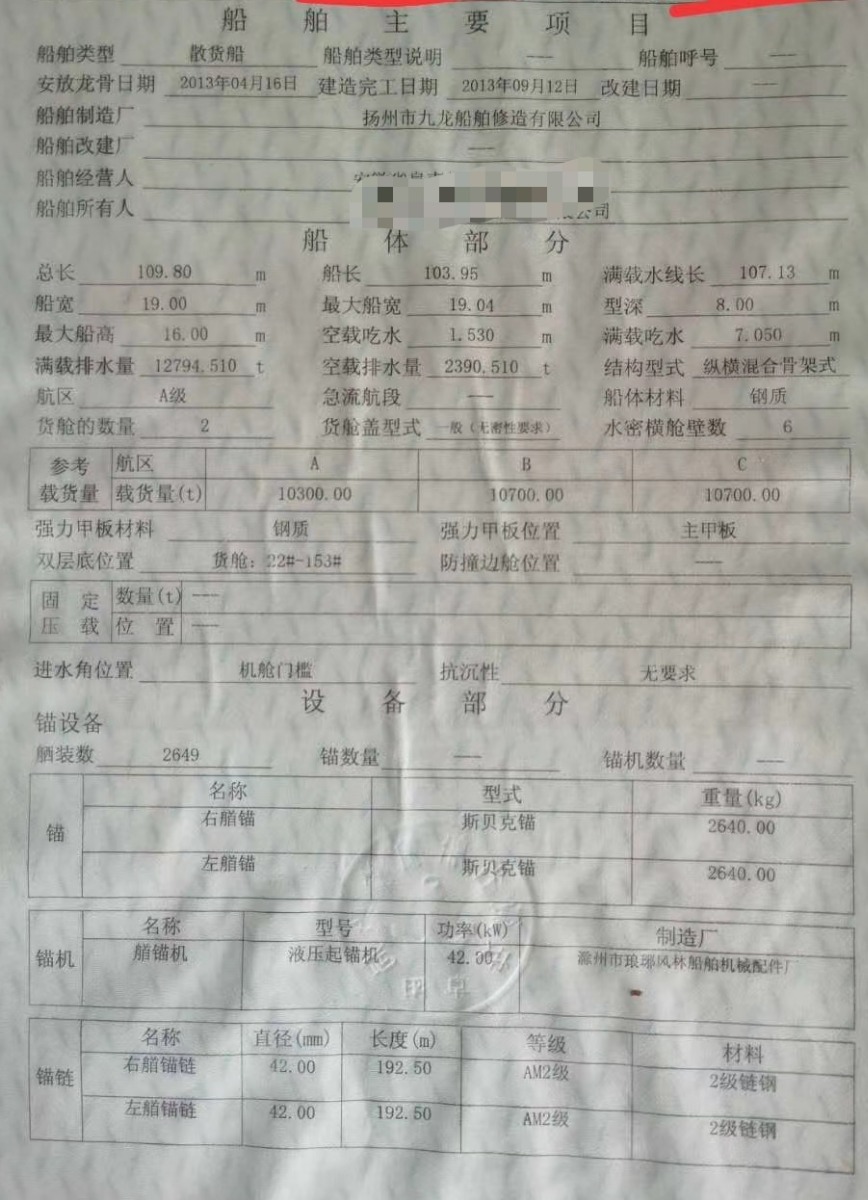 船舶主要项目
船舶类型 散货船 船舶类型说明 --- 船舶呼号 ---
安放龙骨日期 2013年04月16日 建造完工日期 2013年09月12日 改建日期 ---
船舶制造厂 扬州市九龙船舶修造有限公司
船舶改建厂 ---
船舶经营人
船舶所有人 公司
船体部分
总长 109.80 m 船长 103.95 m 满载水线长 107.13 m
船宽 19.00 m 最大船宽 19.04 m 型深 8.00 m
最大船高 16.00 m 空载吃水 1.530 m 满载吃水 7.050 m
满载排水量 12794.510 t 空载排水量 2390.510 t 结构型式 纵横混合骨架式
航区 A级 急流航段 --- 船体材料 钢质
货舱的数量 2 货舱盖型式 一般(无密性要求) 水密横舱壁数 6
参考 航区 A B C
载货量 载货量(t) 10300.00 10700.00 10700.00
强力甲板材料 钢质 强力甲板位置 主甲板
双层底位置 货舱：22#-153# 防撞边舱位置 ---
固定 数量(t) ---
压载 位置 ---
进水角位置 机舱门槛 抗沉性 无要求
设备部分
锚设备
舾装数 2649 锚数量 --- 锚机数量 ---
名称 型式 重量(kg)
锚
右艏锚 斯贝克锚 2640.00
左艏锚 斯贝克锚 2640.00
名称 型号 功率(kW) 制造厂
锚机 艏锚机 液压起锚机 42.00 滁州市琅琊风林船舶机械配件厂
名称 直径(mm) 长度(m) 等级 材料
锚链
右艏锚链 42.00 192.50 AM2级 2级链钢
左艏锚链 42.00 192.50 AM2级 2级链钢